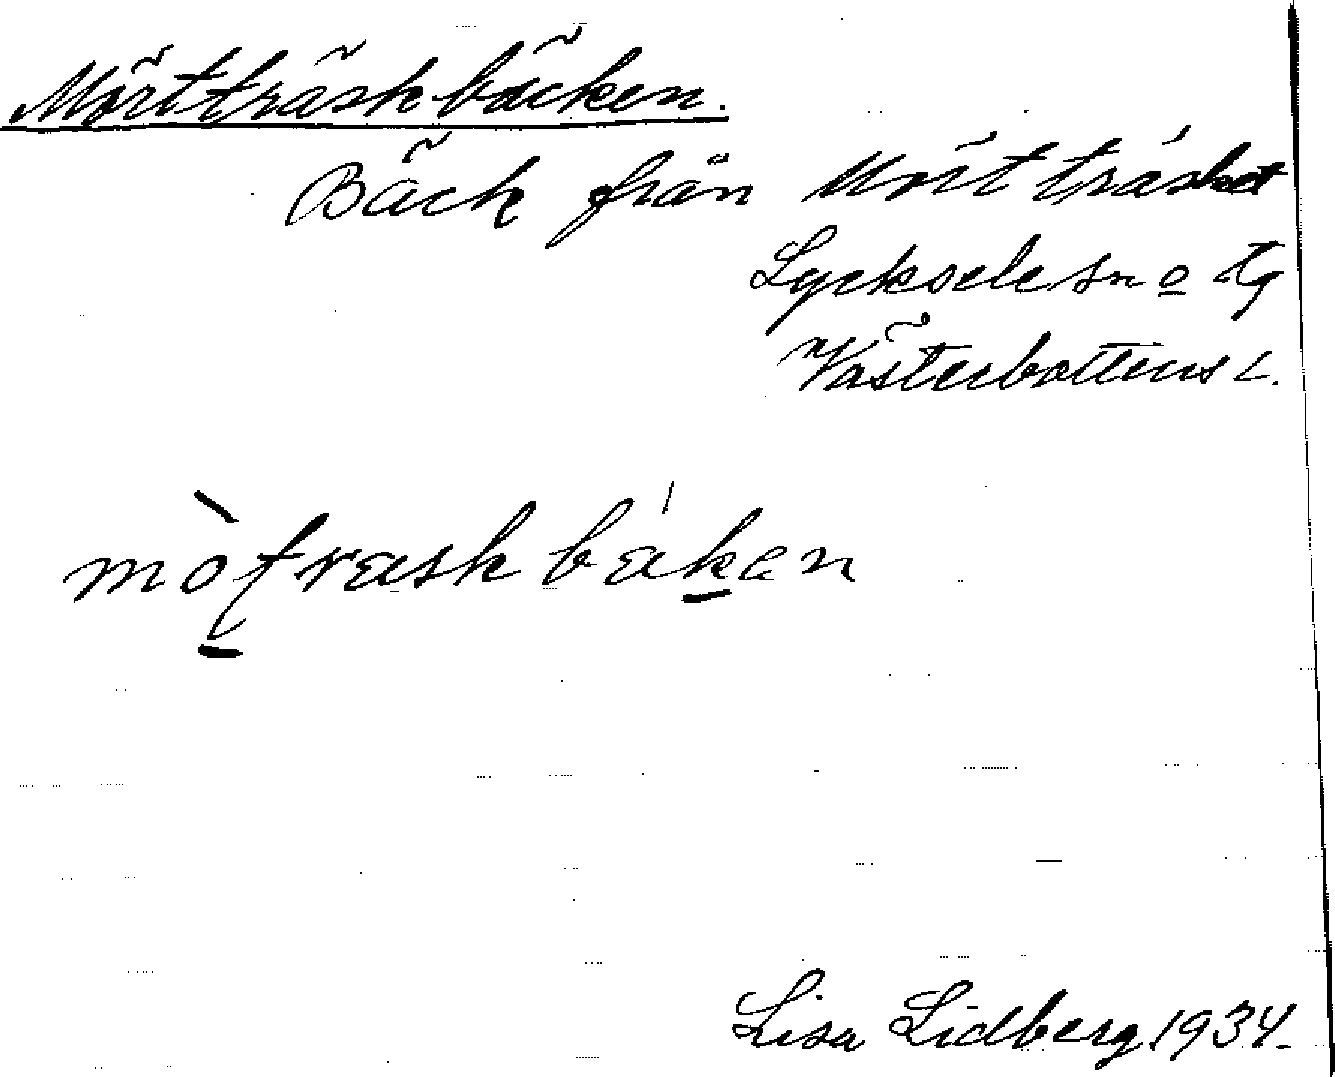 Mörtträskbäcken.
Bäck från Mörtträsket
Lycksele sn o tg
Västerbottens l.
mòtraskbákan
Lisa Lidberg 1934.